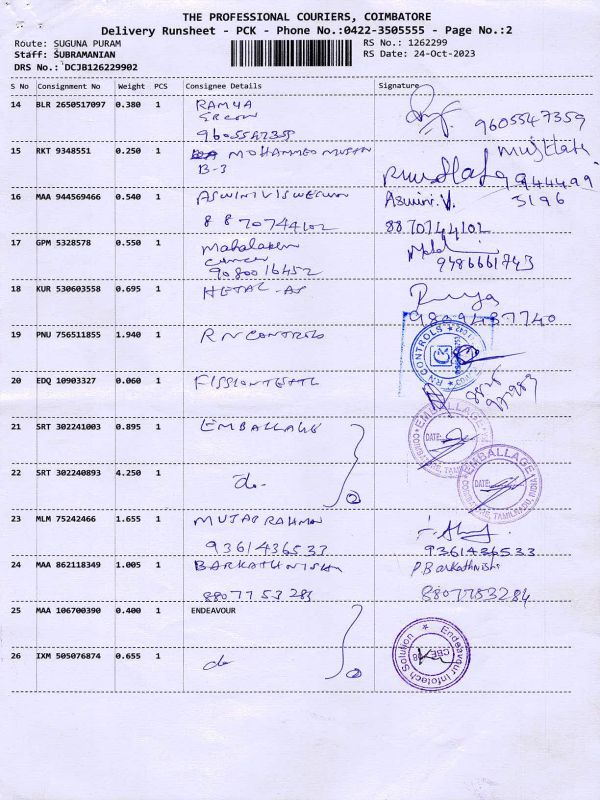 THE PROFESSIONAL COURIERS, COIMBATORE
Delivery Runsheet - PCK - Phone No.:0422-3505555 - Page No.:2
Route: SUGUNA PURAM
RS No.: 1262299
Staff: SUBRAMANIAN
RS Date: 24-Oct-2023
DRS No.: DCJB126229902
S No Consignment No Weight PCS Consignee Details Signature
14 BLR 2650517097 0.380 1 RAMYA
9605547359
15 RKT 9348551 0.250 1 MOHAMMED
B-3
Mustafa
16 MAA 944569466 0.540 1 Aswini.V.
3196
8870744102 8870744102
17 GPM 5328578 0.550 1
9080016452 9486661743
18 KUR 530603558 0.695 1 HETAL-AS
9809487740
19 PNU 756511855 1.940 1 RN CONTROLS
RN CONTROLS
20 EDQ 10903327 0.060 1
21 SRT 302241003 0.895 1 EMBALLAGE
EMBALLAGE
DATE:
COIMBATORE, TAMILNADU
22 SRT 302240893 4.250 1 do-
EMBALLAGE
DATE:
COIMBATORE, TAMILNADU, INDIA
23 MLM 75242466 1.655 1 MUJAB RAHMAN
9361436533 9361436533
24 MAA 862118349 1.005 1 BARKATHNISHA P Barkathnisha
8807753284 8807753284
25 MAA 106700390 0.400 1 ENDEAVOUR
26 IXM 505076874 0.655 1 do
Endeavour Infotech Solution
CBE